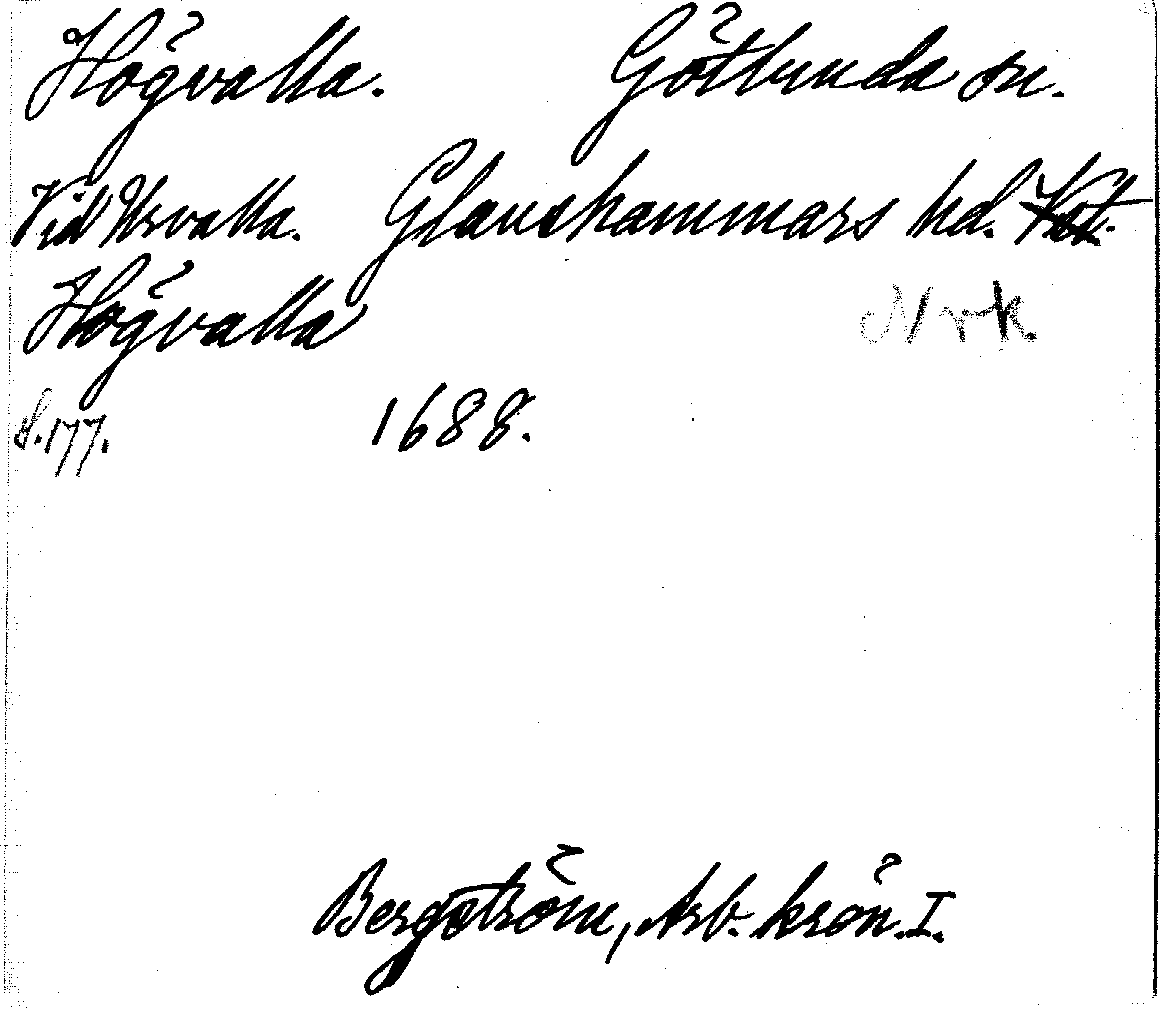 Högvalla. Götlunda sn.
Vid Urvalla. Glanshammars hd. Vst.
Högvalla Nrk.
S. 177. 1688.
Bergström, Arb. krön. I.